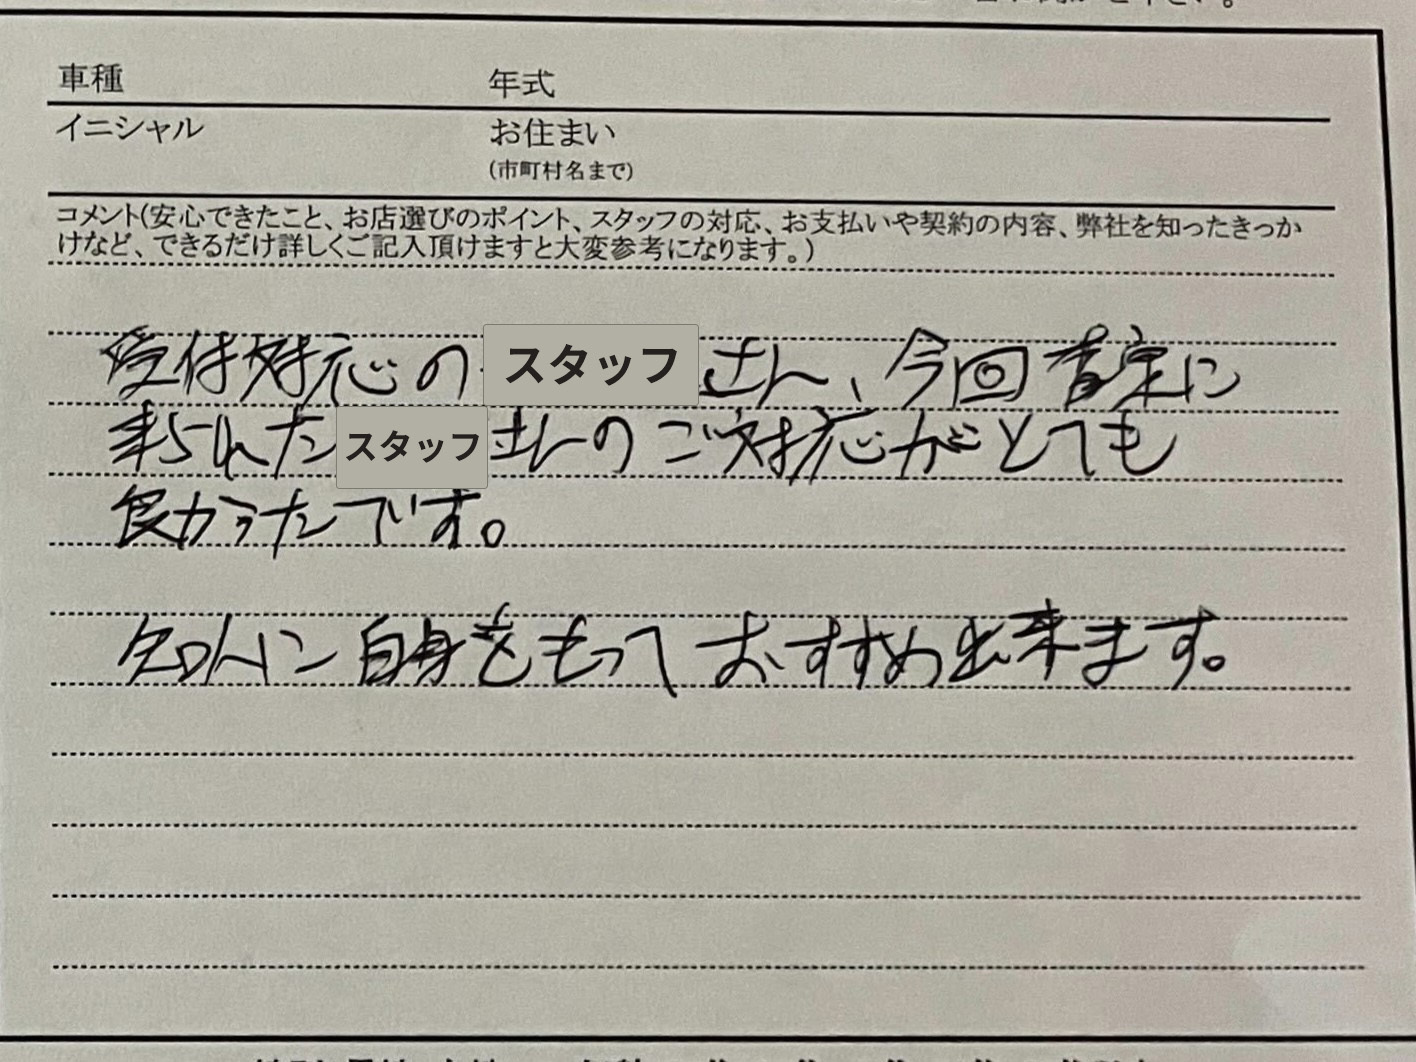 車種 年式
イニシャル お住まい
(市町村名まで)
コメント(安心できたこと、お店選びのポイント、スタッフの対応、お支払いや契約の内容、弊社を知ったきっか
けなど、できるだけ詳しくご記入頂けますと大変参考になります。)
受付対応のスタッフさん、今回査定に
来られたスタッフさんのご対応がとても
良かったです。
知人に自身をもっておすすめ出来ます。